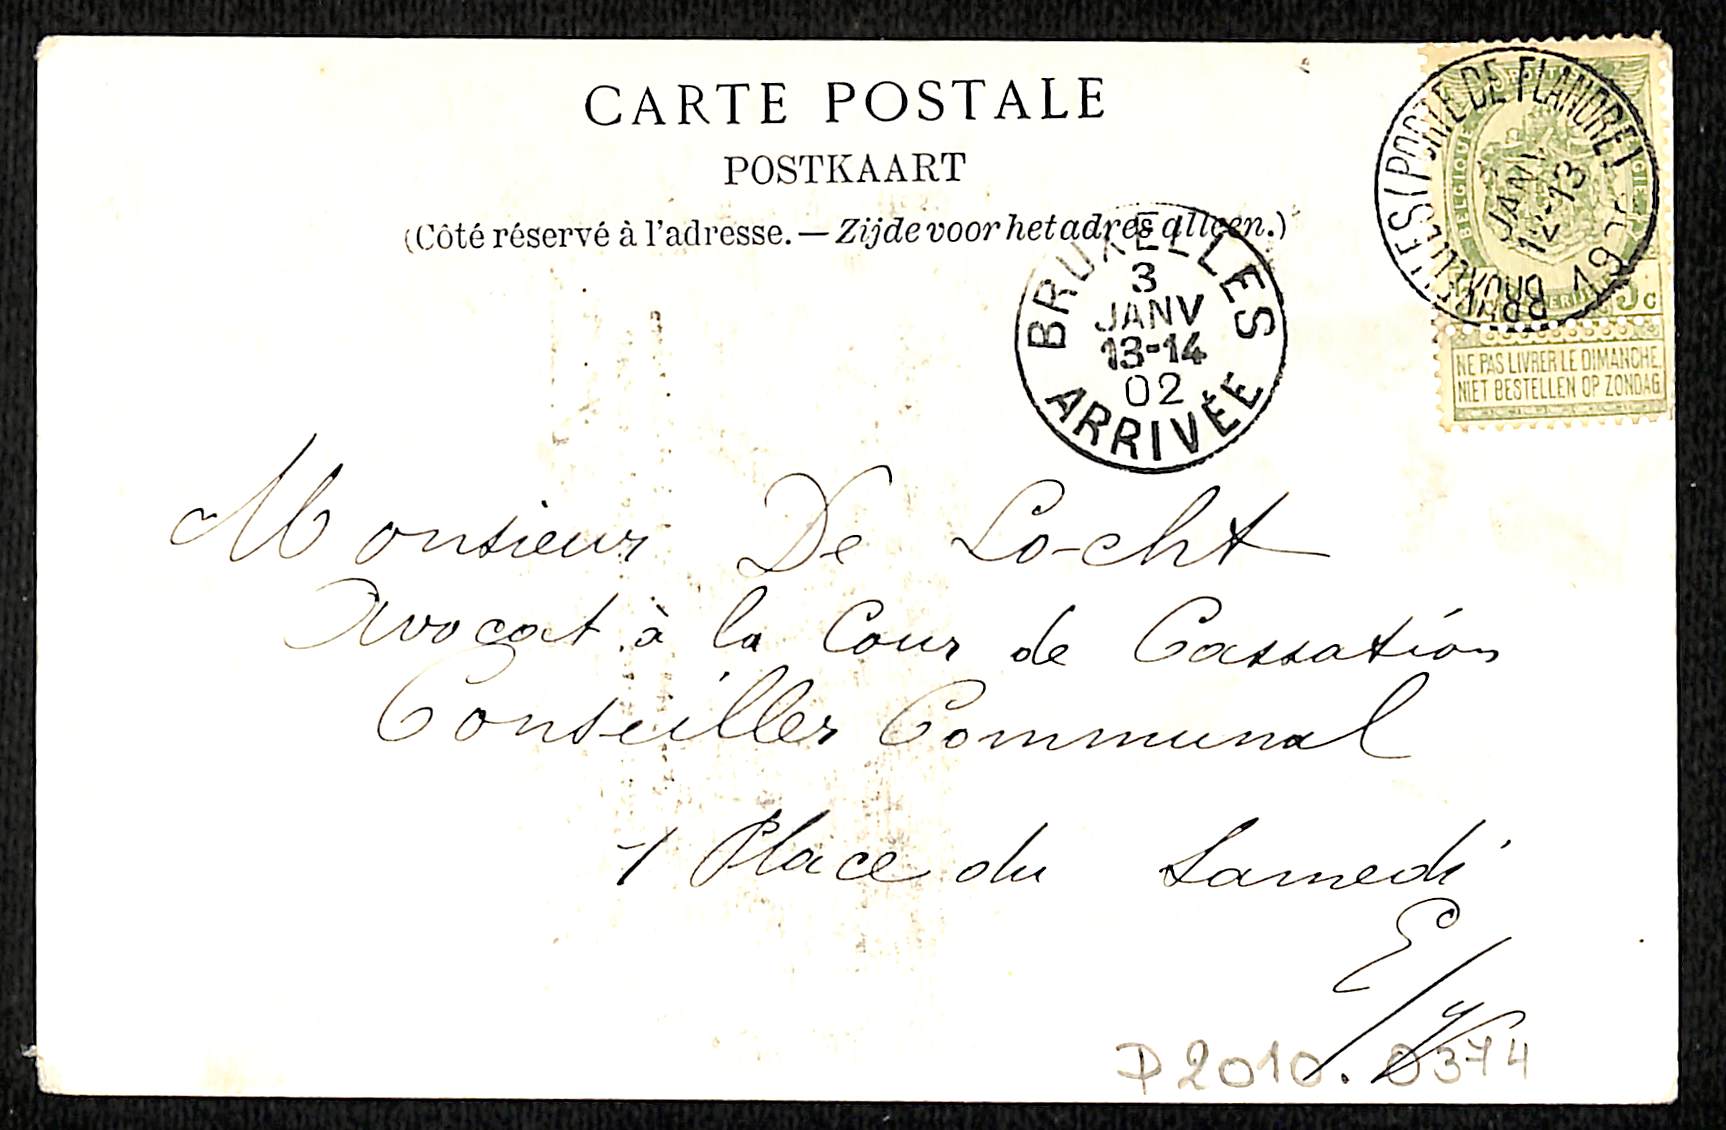 CARTE POSTALE
POSTKAART
(Côté réservé à l'adresse. — Zijde voor het adres alleen.)
BRUXELLES (PORTE DE FLANDRE)
JANV
12-13
BELGIQUE
5c
NE PAS LIVRER LE DIMANCHE
NIET BESTELLEN OP ZONDAG
BRUXELLES
3
JANV
13-14
02
ARRIVÉE
Monsieur De Locht
Avocat à la Cour de Cassation
Conseiller Communal
1 Place du Samedi
E/V
P2010.0374